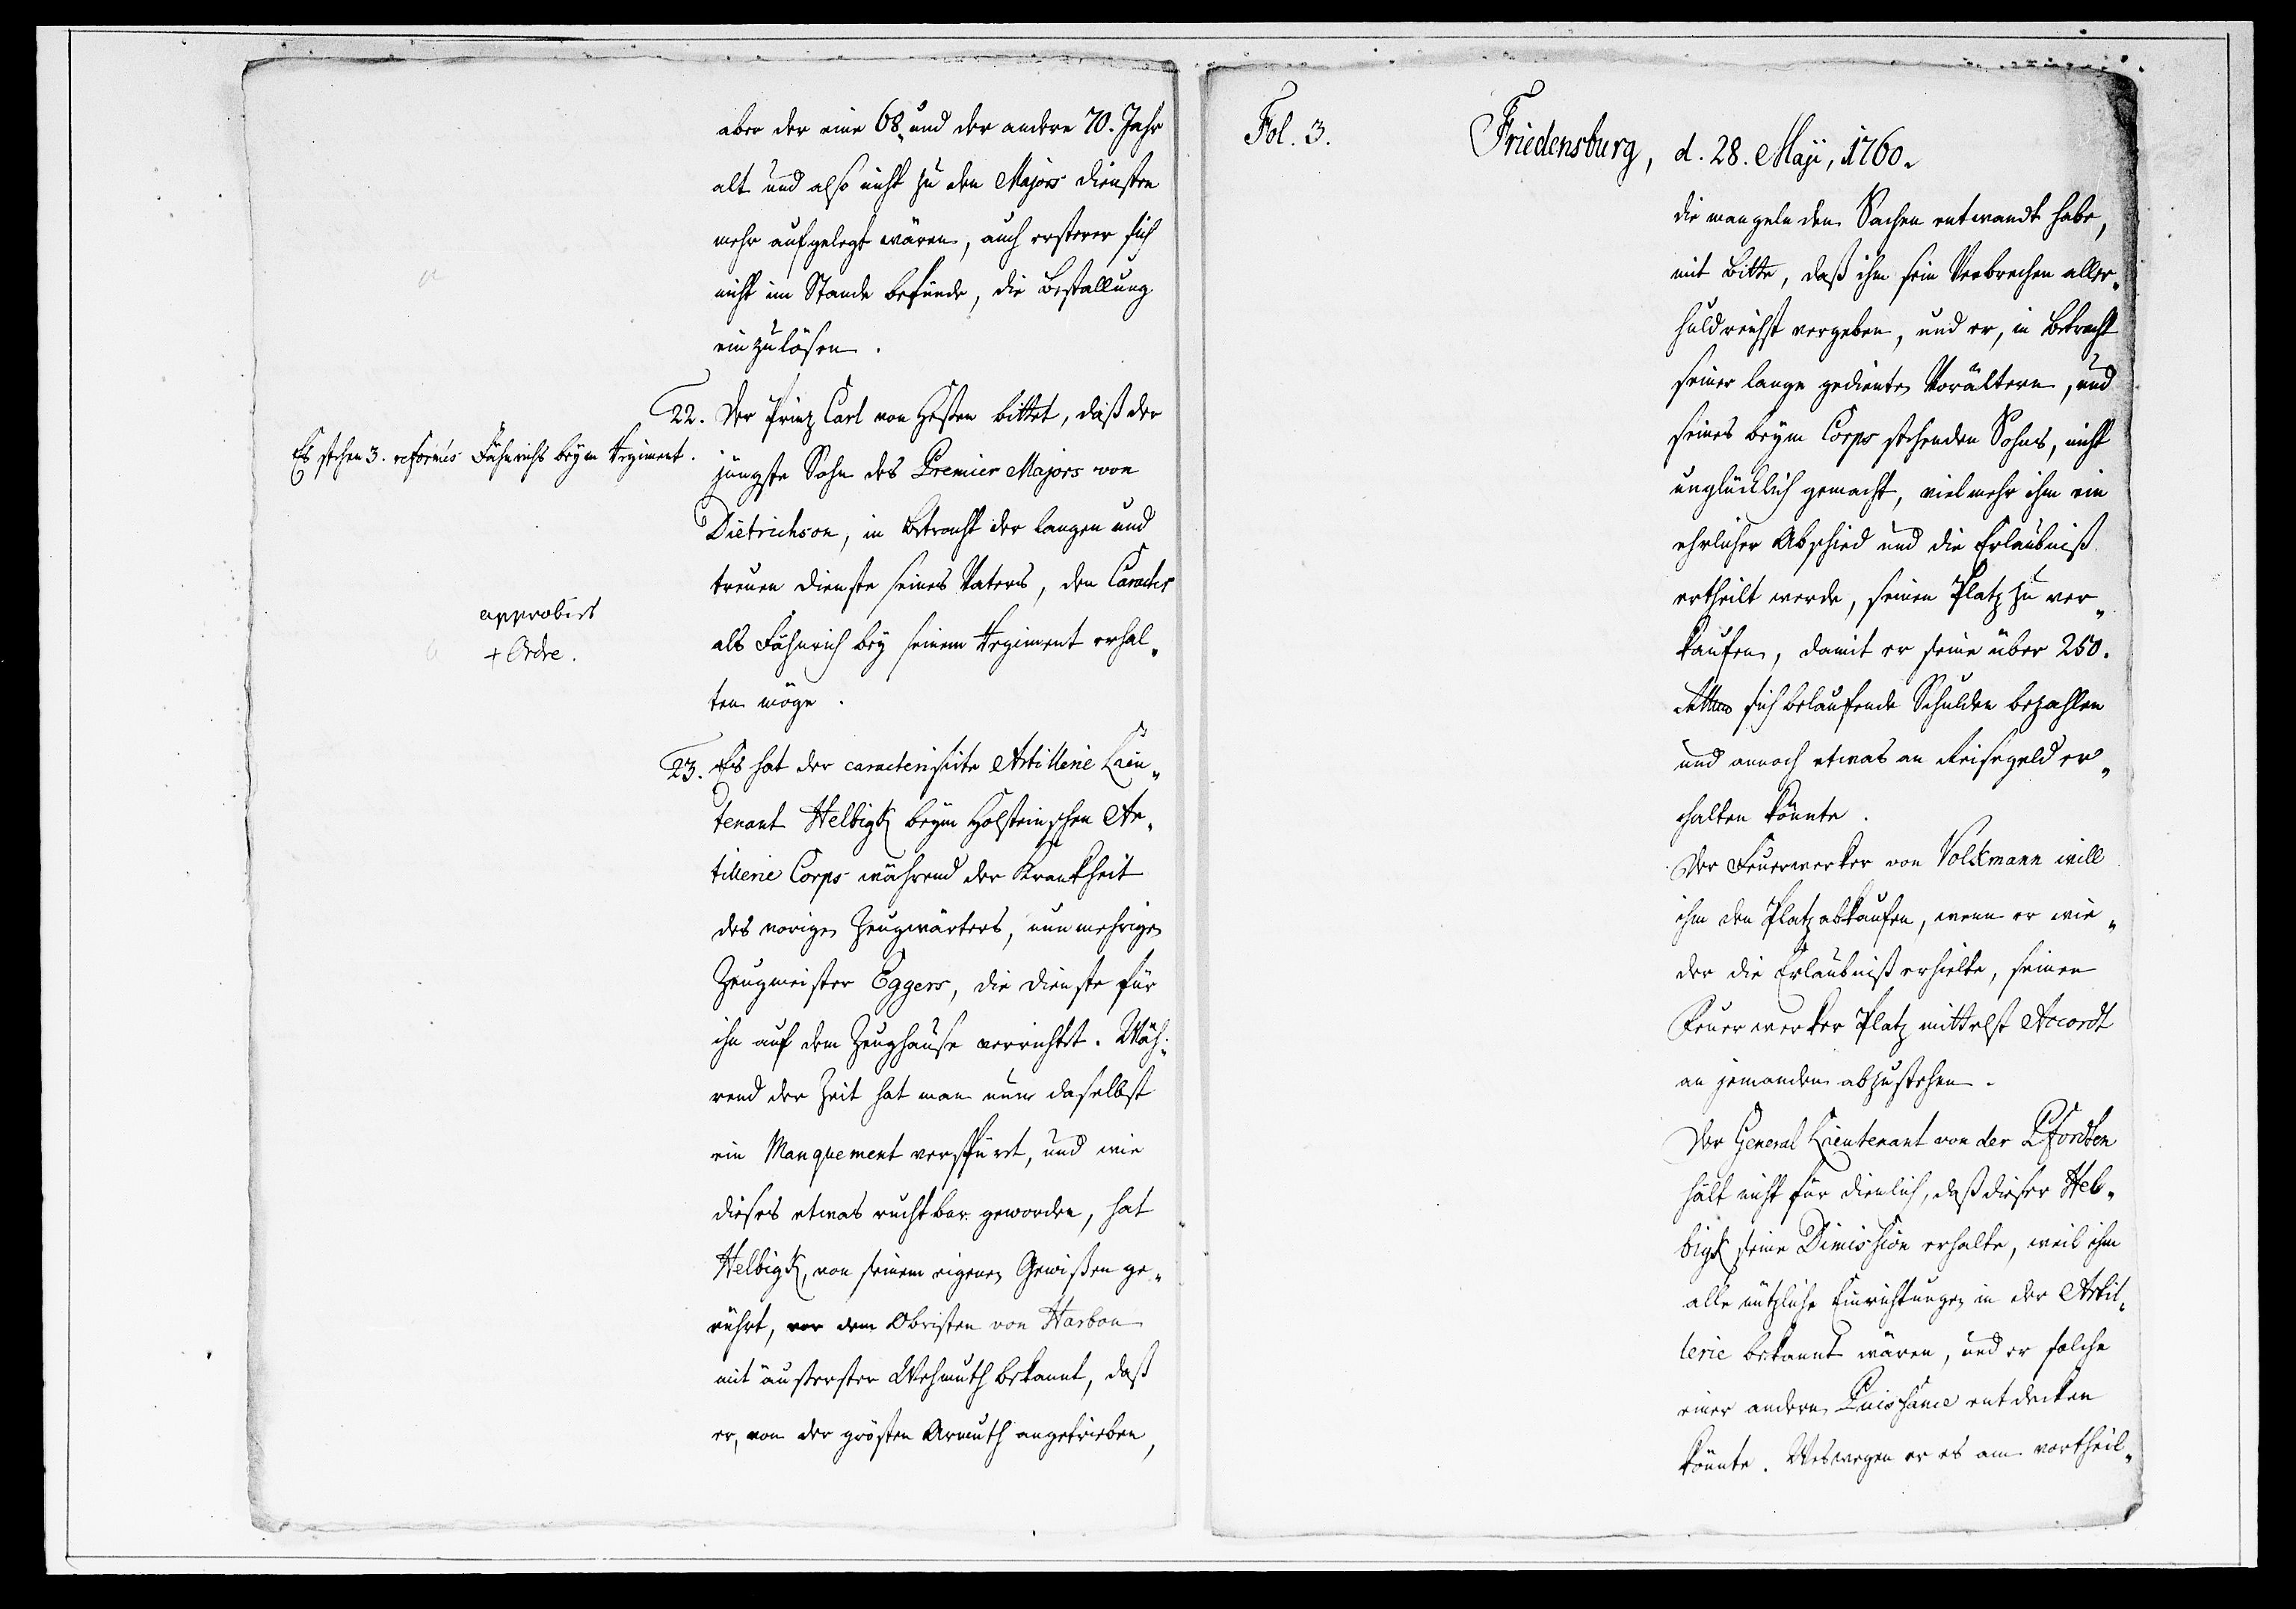 aber der eine 68. und der andere 70. Jahr
alt und also nicht zu den Majors Diensten
mehr aufgelegt wären, auch ersterer sich
nicht im Stande befünde, die Bestallung
einzulösen.
22. Der Prinz Carl von Heßen bittet, daß der
Es stehen 3. reformés Fähnrichs beym Regiment.
jüngste Sohn des Premier Majors von
Dietrichson, in Betracht der langen und
treuen Dienste seines Vaters, den Caracter
als Fähnrich bey seinem Regiment erhal„
ten möge.
approbirt
+ Ordre.
23. Es hat der caracterisirte Artillerie Lieu„
tenant Helbigk beym Holsteinschen Ar„
tillerie Corps während der Krankheit
des vorigen Zeugwärters, nunmehrigen
Zeugmeister Eggers, die Dienste für
ihn auf dem Zeughause verrichtet. Wäh„
rend der Zeit hat man nun daselbst
ein Manquement verspürt, und wie
dieses etwas ruchtbar geworden, hat
Helbigk, von seinem eigenen Gewißen ge„
rührt, vor dem Obristen von Harbou
mit äusterster Wehmuth bekannt, daß
er, von der grösten Armuth angetrieben,
Fol. 3.
Friedensburg, d. 28. Maji, 1760.
die mangelnden Sachen entwandt habe,
mit Bitte, daß ihm sein Verbrechen aller„
huldreichst vergeben, und er, in Betracht
seiner lange gedienten Vorältern, und
seines beym Corps stehenden Sohns, nicht
unglücklich gemacht, vielmehr ihm ein
ehrlicher Abschied und die Erlaubniß
ertheilt werde, seinen Platz zu ver„
kaufen, damit er seine über 250.
sich belaufende Schulden bezahlen
und annoch etwas an Reisegeld er„
halten könnte.
Der Feuerwerker von Volckmann will
ihm den Platz abkaufen, wenn er wie„
der die Erlaubniß erhielte, seinen
Feuerwerker Platz mittelst Accordt
an jemanden abzustehen.
Der General Lieutenant von der Pfordten
hält nicht für dienlich, daß dieser Hel„
bigk seine Dimission erhalte, weil ihm
alle nützliche Einrichtungen in der Artil„
lerie bekannt wären, und er solche
einer andern Puissance entdecken
könnte. Weswegen er es am vortheil„